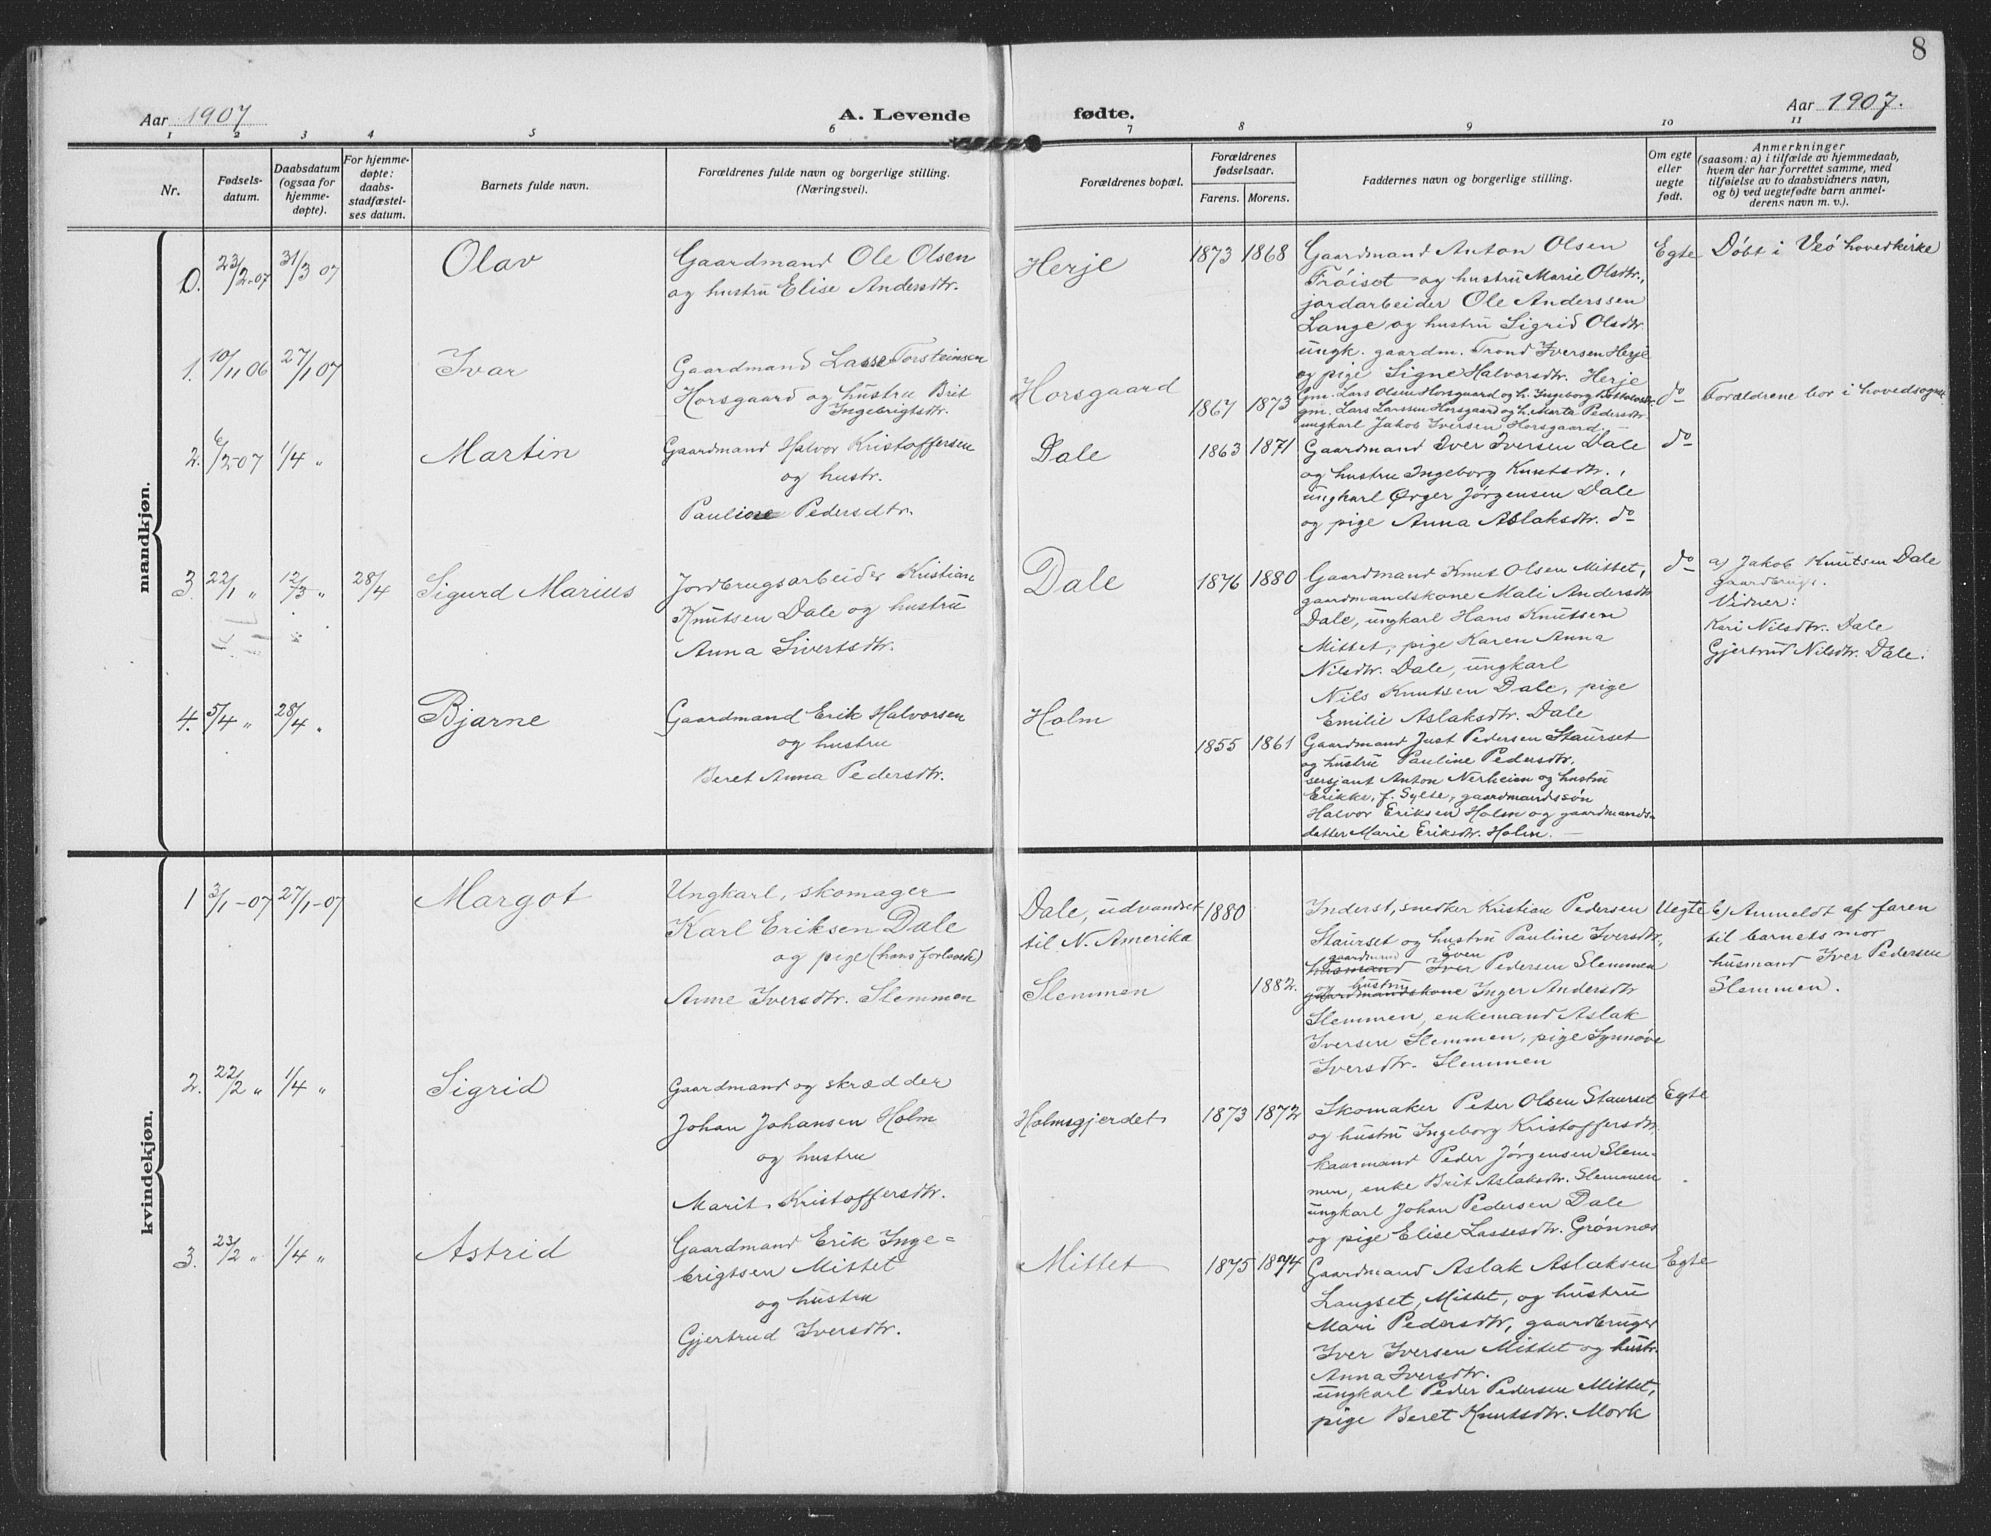 8
Aar 1907
A. Levende fødte.
Aar 1907.
1 2 3 4 5 6 7 8 9 10 11
Nr.
Fødsels-
datum.
Daabsdatum
(ogsaa for
hjemme-
døpte).
For hjemme-
døpte:
daabs-
stadfæstel-
ses datum.
Barnets fulde navn.
Forældrenes fulde navn og borgerlige stilling.
(Næringsvei).
Forældrenes bopæl.
Forældrenes
fødselsaar.
Farens. Morens.
Faddernes navn og borgerlige stilling.
Om egte
eller
uegte
født.
Anmerkninger
(saasom: a) i tilfælde av hjemmedaab,
hvem der har forrettet samme, med
tilføielse av to daabsvidners navn,
og b) ved uegtefødte barn anmel-
derens navn m. v.).
mandkjøn.
0. 23/2-07 31/3 07
Olav
Gaardmand Ole Olsen
og hustru Elise Andersdtr.
Herje
1873 1868
Gaardmand Anton Olsen
Trøiset og hustru Marie Olsdtr.,
jordarbeider Ole Anderssen
Lange og hustru Sigrid Olsdtr.
ungk. gaardm. Trond Iversen Herje
og pige Signe Halvorsdtr. Herje
Egte
Døbt i Veö hovedkirke
1. 10/11 06 27/1 07
Ivar
Gaardmand Lasse Torsteinsen
Horsgaard og hustru Brit
Ingebrigtsdtr.
Horsgaard
1867 1873
Gm. Lars Olsen Horsgaard og h. Ingeborg
gm. Lars Larssen Horsgaard og h. Marta Pedersdtr.
ungkarl Jakob Iversen Horsgaard. —
do
Forældrene bor i hovedsognet.
2. 6/2-07 1/4 "
Martin
Gaardmand Halvor Kristoffersen
og hustr.
Pauline Pedersdtr.
Dale
1863 1871
Gaardmand Iver Iversen Dale
og hustru Ingeborg Knutsdtr.,
ungkarl Ørger Jørgensen Dale
og pige Anna Aslaksdtr. do
do
3. 22/1 " 12/3 " 28/4
Sigurd Marius
Jordbrugsarbeider Kristian
Knutsen Dale og hustru
Anna Sivertsdtr.
Dale
1876 1880
Gaardmand Knut Olsen Mittet,
gaardmandskone Mali Andersdtr
Dale, ungkarl Hans Knutsen
Mittet, pige Karen Anna
Nilsdtr. Dale, ungkarl
Nils Knutsen Dale, pige
Emilie Aslaksdtr. Dale
do
a) Jakob Knutsen Dale
gaardbrug.
Vidner:
Kari Nilsdtr. Dale
Gjertrud Nilsdtr. Dale.
4. 5/4 " 28/4 "
Bjarne
Gaardmand Erik Halvorsen
og hustru
Beret Anna Pedersdtr.
Holm
1855 1861
Gaardmand Just Pedersen Staurset
og hustru Pauline Pedersdtr.
sersjant Anton Nerheim og hustru
Erikke, f. Sylte, gaardmandssøn
Halvor Eriksen Holm og gaardmands-
datter Marie Eriksdtr. Holm. —
kvindekjøn.
1 3/1-07 27/1-07
Margot
Ungkarl, skomager
Karl Eriksen Dale
og pige (hans forlovede)
Anne Iversdtr. Slemmen
Dale, udvandret
til N. Amerika
Slemmen
1880
1882.
Inderst, snedker Kristian Pedersen
Staurset og hustru Pauline Iversdtr.,
gaardmand Even
husmand Iver Pedersen Slemmen
og hustru
gaardmandskone Inger Andersdtr
Slemmen, enkemand Aslak
Iversen Slemmen, pige Synnøve
Iversdtr. Slemmen
Uegte
b) Anmeldt af faren
til barnets mor
husmand Iver Pedersen
Slemmen.
2. 22/2 " 1/4 "
Sigrid
Gaardmand og skrædder
Johan Johansen Holm
og hustru
Marit Kristoffersdtr.
Holmsgjerdet
1873 1872
Skomaker Peter Olsen Staurset
og hustru Ingeborg Kristoffersdtr.
kaarmand Peder Jørgensen Slem-
men, enke Brit Aslaksdtr. Slemmen
ungkarl Johan Pedersen Dale
og pige Elise Lassesdtr. Grønnæs
Egte
3. 23/2 " 1/4 "
Astrid
Gaardmand Erik Inge=
brigtsen Mittet
og hustru
Gjertrud Iversdtr.
Mittet
1875 1874
Gaardmand Aslak Aslaksen
Langset, Mittet, og hustru
Mari Pedersdtr, gaardbruger
Iver Iversen Mittet og hustr.
Anna Iversdtr.
ungkarl Peder Pedersen Mittet,
pige Beret Knutsdtr. Mork
Egte